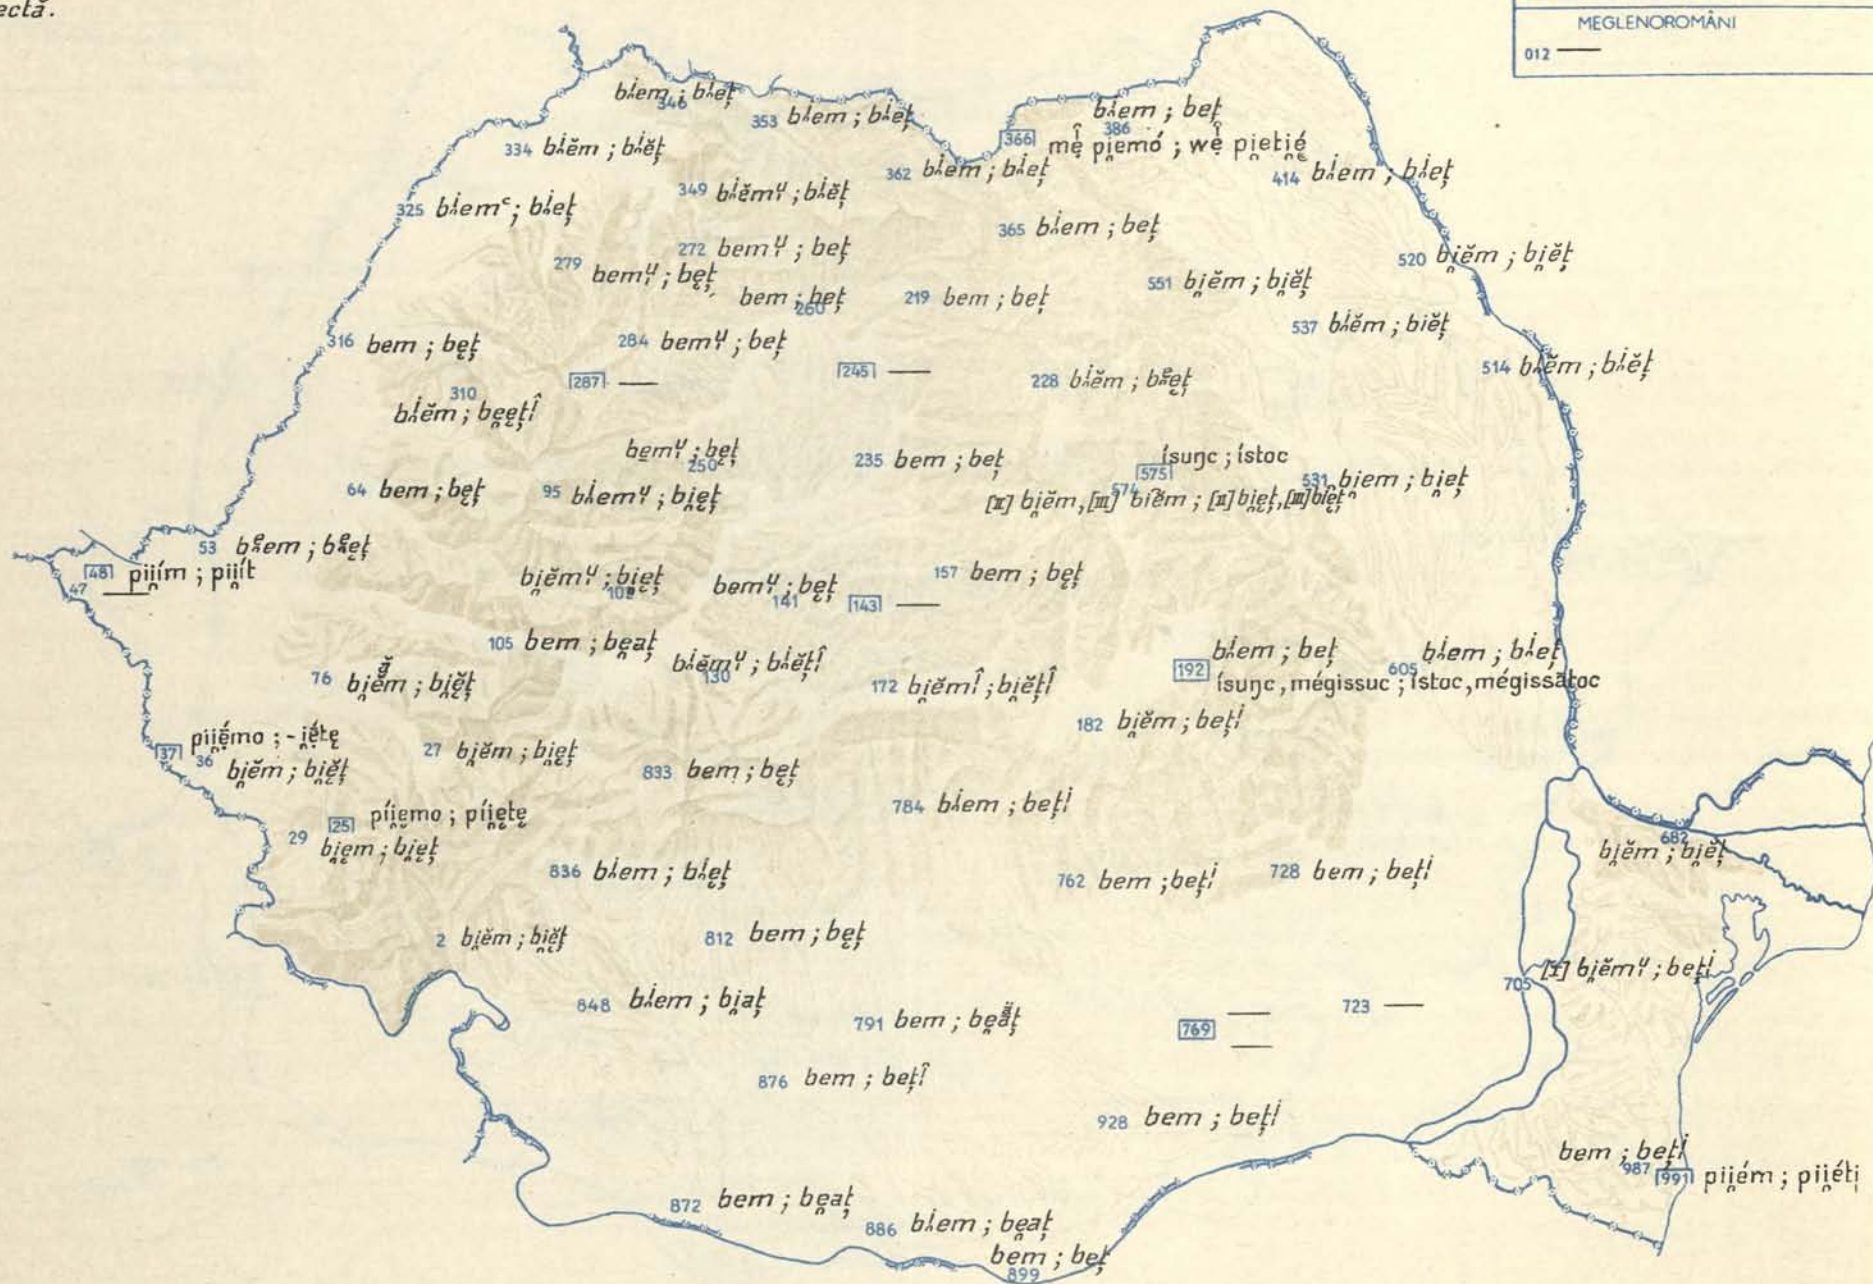 ectă.
MEGLENOROMÂNI
012 —
346 bi̯em ; bi̯eț
353 bi̯em ; bi̯eț
386 bi̯em ; beț
366 mệ pi̯emó ; wệ pi̯eti̯é
334 bi̯ĕm ; bi̯ĕț
362 bi̯em ; bi̯eț
414 bi̯em ; bi̯eț
349 bi̯ĕmᶙ ; bi̯ĕț
325 bi̯emᶜ ; bi̯eț
365 bi̯em ; beț
272 bemᶙ ; beț
520 bi̯ĕm ; bi̯ĕț
279 bemᶙ ; bęț
551 bi̯ĕm ; bi̯ĕț
260 bem ; beț
219 bem ; beț
537 bi̯ĕm ; biĕț
316 bem ; bęț
284 bemᶙ ; beț
514 bi̯ĕm ; bi̯ĕț
287 —
245 —
228 bi̯ĕm ; be̯ęț
310 bi̯ĕm ; be̯ęțî
250 bemᶙ ; bęț
235 bem ; beț
575 ísuŋc ; ístoc
574 [II] bi̯ĕm, [III] biĕm ; [II] bi̯ęț, [III] biĕț
531 bi̯em ; bi̯eț
64 bem ; bęț
95 bi̯emᶙ ; bi̯ęț
53 be̯em ; be̯ęț
48 pii̯ím ; pii̯ít
47 —
102 bi̯ĕmᶙ ; bi̯ęț
141 bemᶙ ; bęț
143 —
157 bem ; bęț
105 bem ; be̯aț
130 bi̯ĕmᶙ ; bi̯ĕțî
192 bi̯em ; beț
ísuŋc, mégissuc ; ístoc, mégissătoc
605 bi̯em ; bi̯eț
76 bi̯ĕm ; bi̯ę̆ț
172 bi̯ĕmî ; bi̯ĕțî
182 bi̯ĕm ; bețⁱ
37 pii̯ẹ́mo ; -i̯ẹ́tę
36 bi̯ĕm ; bi̯ę̆ț
27 bi̯ĕm ; bi̯ęț
833 bem ; bęț
784 bi̯em ; bețⁱ
25 píi̯ęmo ; píi̯ętę
29 bi̯ęm ; bi̯ęț
836 bi̯em ; bi̯ęț
762 bem ; bețⁱ
728 bem ; bețⁱ
682 bi̯ĕm ; bi̯ĕț
2 bi̯ĕm ; bi̯ę̆ț
812 bem ; bęț
705 [I] bi̯ĕmᶙ ; bețⁱ
848 bi̯em ; bi̯aț
791 bem ; be̯ăț
769 —
—
723 —
876 bem ; bețî
928 bem ; bețⁱ
987 bem ; bețⁱ
991 pii̯ém ; pii̯éti̯
872 bem ; be̯aț
886 bi̯em ; be̯aț
899 bem ; beț